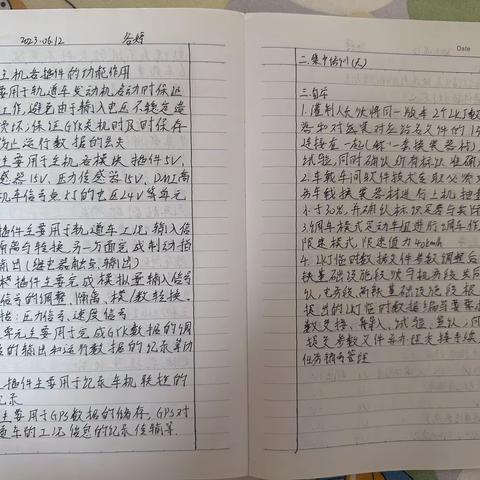 2023.06.12
主机各插件的功能作用
要用于轨道车发动机启动时保证
工作,避免由于输入电压不稳定造
损坏,保证GYK关机时及时保存
防止运行数据的丢失
主要用于主机各模块插件5V,
感器15V,压力传感器15V,DMI高
机车信号点灯的电压24V等单元
插件主要用于轨道车工况输入信号
隔离与转换,另一方面完成制动指
输出(继电器触点输出)
插件主要完成模拟量输入信号
信号的调整、隔离、模/数转换。
括:压力信号、速度信号
单元主要用于完成GYK数据的调
的输出和运行数据的记录等功
插件主要用于记录车机联控的
记录
主要用于GPS数据的储存,GPS对
道车的工况信息的记录传输等.
Date
二.集中培训(天)
三.自学
1.值制人员须将同一版本2个LKJ数
连接在一起(称一套换装器材)
试验,同时确认所有标识准确
2.车载车间软件技术
务车载换装器材进行上机抽查
小于30%,并确认标识是否与实际
3.调车模式无动车组进行调车作
限速模式 限速值为40km/h
4.LKJ临时数据文件参数调整后
铁基础设施段须守机务段共同
认,电务段
提出的LKJ临时数据编写要求
数交接、导入、试验、签认,同
提交参数文件并办理交接手续
任务销号管理